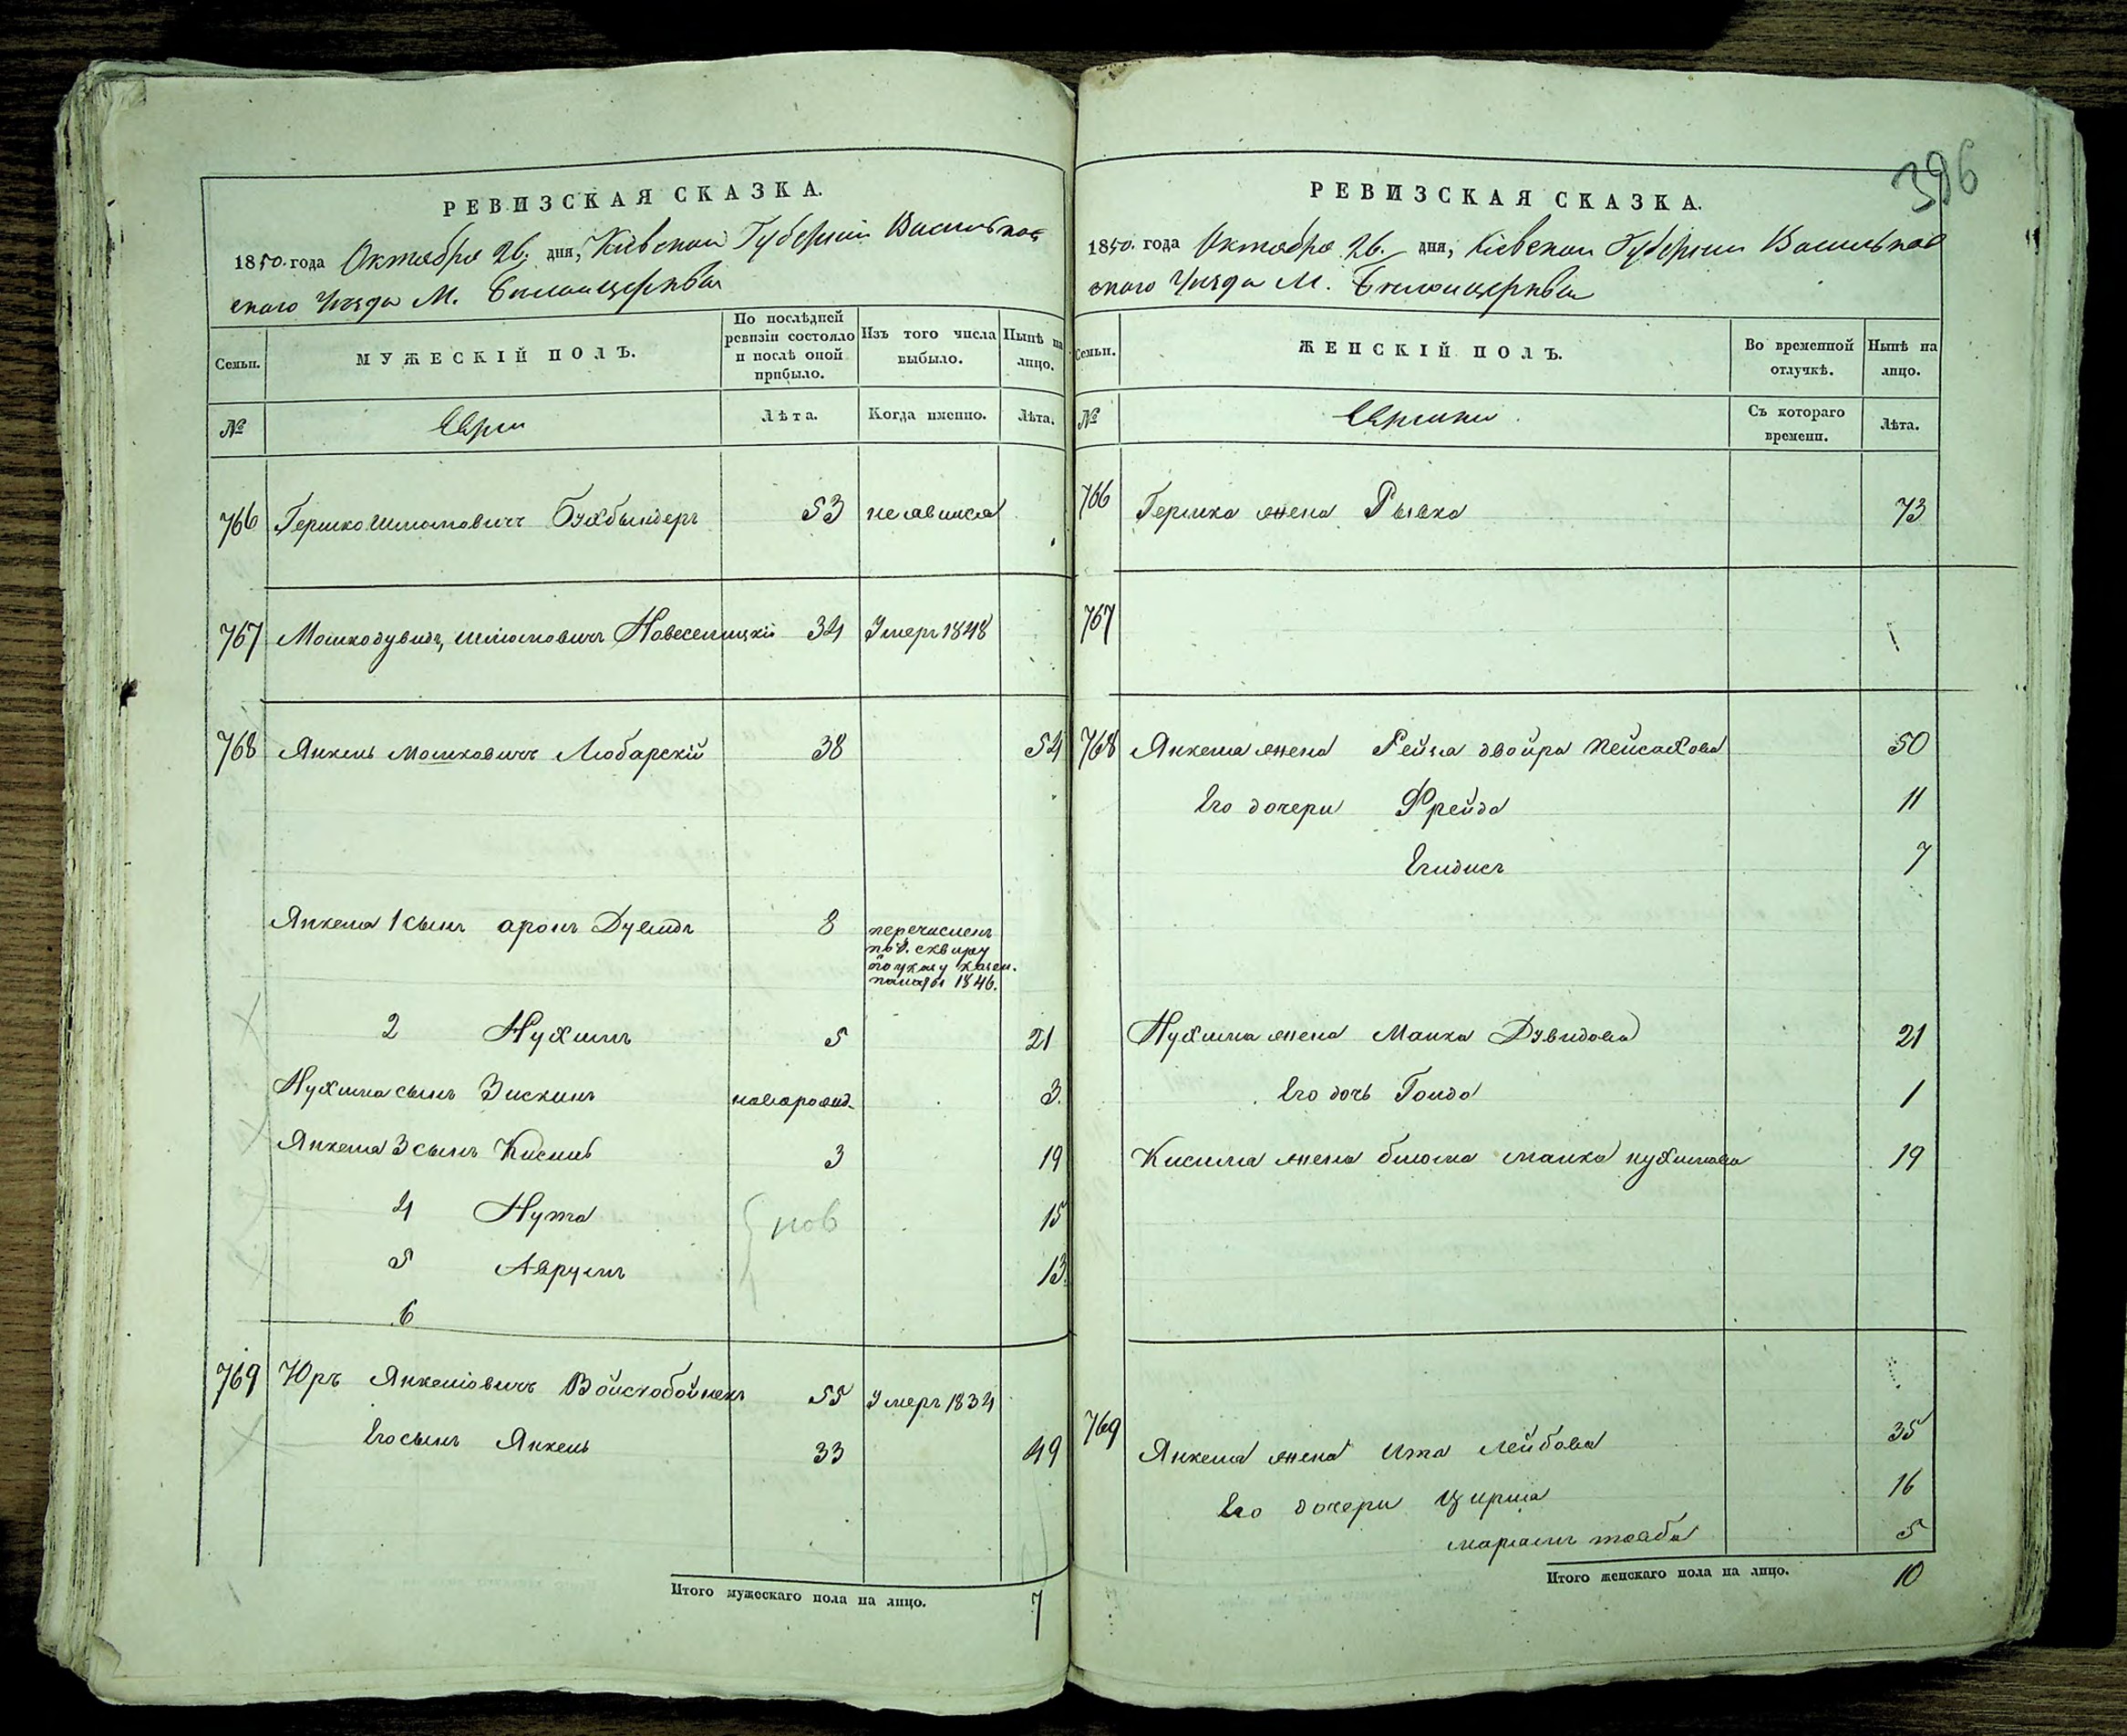 396
РЕВИЗСКАЯ СКАЗКА.
1850. года Октября 26. дня, Кіевской Губерніи Васильков
ского Уезда М. Белойцеркви
Семьи.
МУЖЕСКІЙ ПОЛЪ.
По послѣдней ревизіи состояло и послѣ оной прибыло.
Изъ того числа выбыло.
Нынѣ на лицо.
№
Евреи
Лѣта.
Когда именно.
Лѣта.
766 Гершко Шлiомовичъ Бухбындеръ 53 неявился
767 Мошкодувидъ Шлiомовичъ Новеселицкiй 34 Умеръ 1848
768 Янкель Мошковичъ Любарскій 38 54
Янкеля 1 сынъ аронъ Дувидъ 8 перечисленъ
в. сквиру
по указу казен.
палаты 1846.
2 Нухимъ 5 21
Нухима сынъ Зискинъ новорожд. 3.
Янкеля 3 сынъ Кисиль 3 19
4 Нута нов 15
5 Аврумъ 13.
6
769 Юръ Янкеліовичъ Войскобойнекъ 55 Умеръ 1834
Его сынъ Янкель 33 49
Итого мужескаго пола на лицо. 7
РЕВИЗСКАЯ СКАЗКА.
1850. года Октября 26. дня, Кіевской Губерніи Васильков
ского Уезда М. Белойцеркви
Семьи.
ЖЕНСКІЙ ПОЛЪ.
Во временной отлучкѣ.
Нынѣ на лицо.
№
Еврейки
Съ котораго времени.
Лѣта.
766 Гершка жена Рывка 73
767
768 Янкеля жена Рейза двойра Пейсахова 50
Его дочери Фрейда 11
7
Нухима жена Малка Дувидова 21
Его дочь Голда 1
Кисиля жена блюма малка нухимова 19
769 Янкеля жена Ита Лейбова 35
Его дочери Цирля 16
марьямъ тойба 5
Итого женскаго пола на лицо. 10